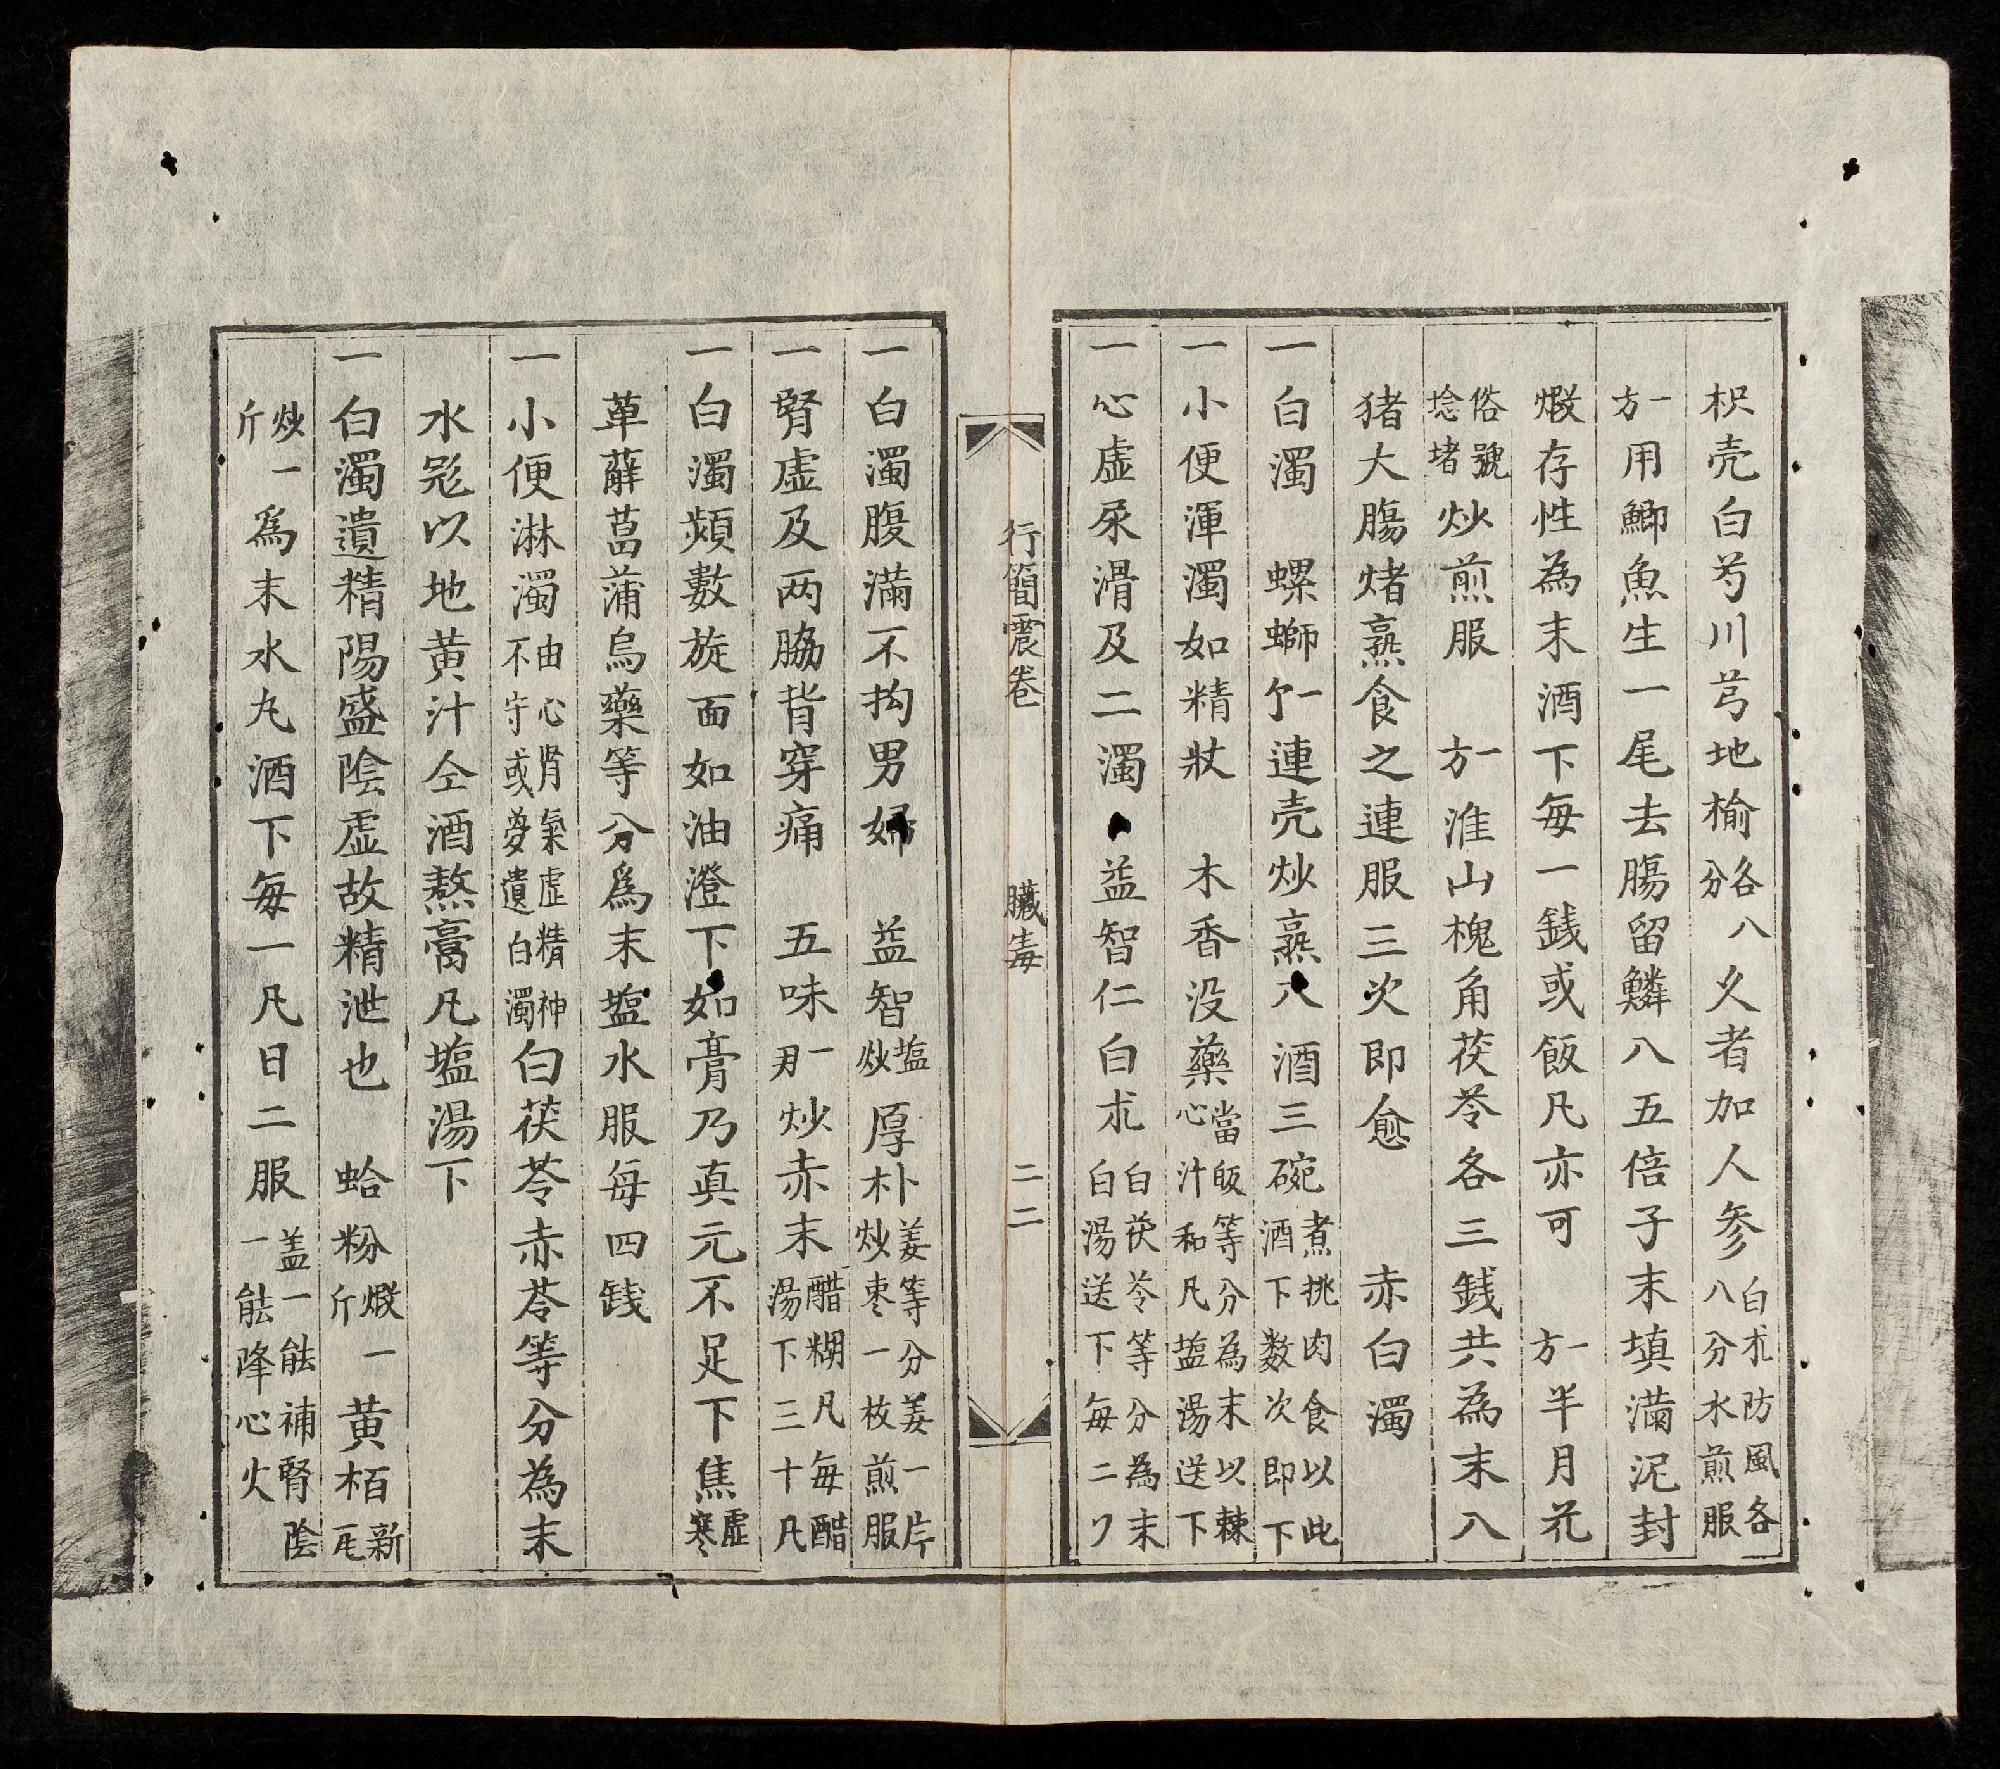 枳壳白芍川芎地榆各八分久者加人参白朮防風各八分水煎服
一方用鯽魚生一尾去腸留鱗入五倍子末填滿泥封
煅存性為末酒下每一銭或飯凡亦可 一方半月花
俗號埝堵炒煎服 一方淮山槐角茯苓各三銭共為末入
猪大腸煮熟食之連服三次即愈 赤白濁
一白濁 螺螄一个連壳炒熟入酒三碗煮挑肉食以此酒下数次即下
一小便渾濁如精狀 木香没藥當皈等分為末以棘心汁和凡塩湯送下
一心虚尿滑及二濁 益智仁白朮白茯苓等分為末白湯送下每二刀
行簡震卷 臓毒 二二
一白濁腹滿不拘男婦 益智塩炒厚朴姜炒等分姜一片枣一枚煎服
一腎虚及两脇背穿痛 五味一斤炒赤末醋糊凡每醋湯下三十凡
一白濁頻數旋面如油澄下如膏乃真元不足下焦虛寒
萆薢菖蒲烏藥等分爲末塩水服每四銭
一小便淋濁由心肾氣虚精神不守或夢遺白濁白茯苓赤苓等分為末
水羓以地黄汁仝酒熬膏凡塩湯下
一白濁遺精陽盛陰虚故精泄也 蛤粉煅一斤黄栢新瓦
炒一斤爲末水丸酒下每一凡日二服盖一能補腎陰一能降心火